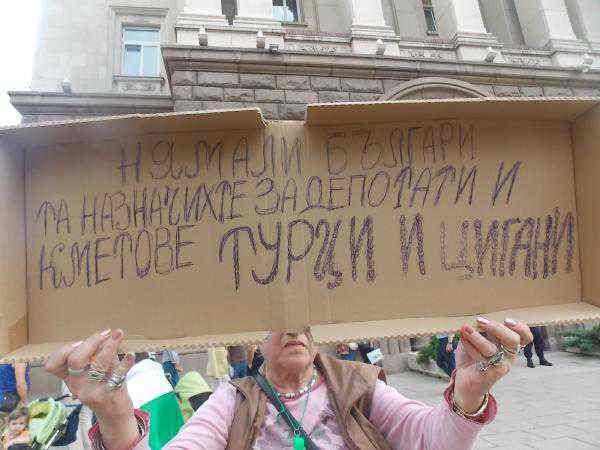 НЯМАЛИ БЪЛГАРИ
ТА НАЗНАЧИХТЕ ЗА ДЕПОТАТИ И
КМЕТОВЕ ТУРЦИ И ЦИГАНИ